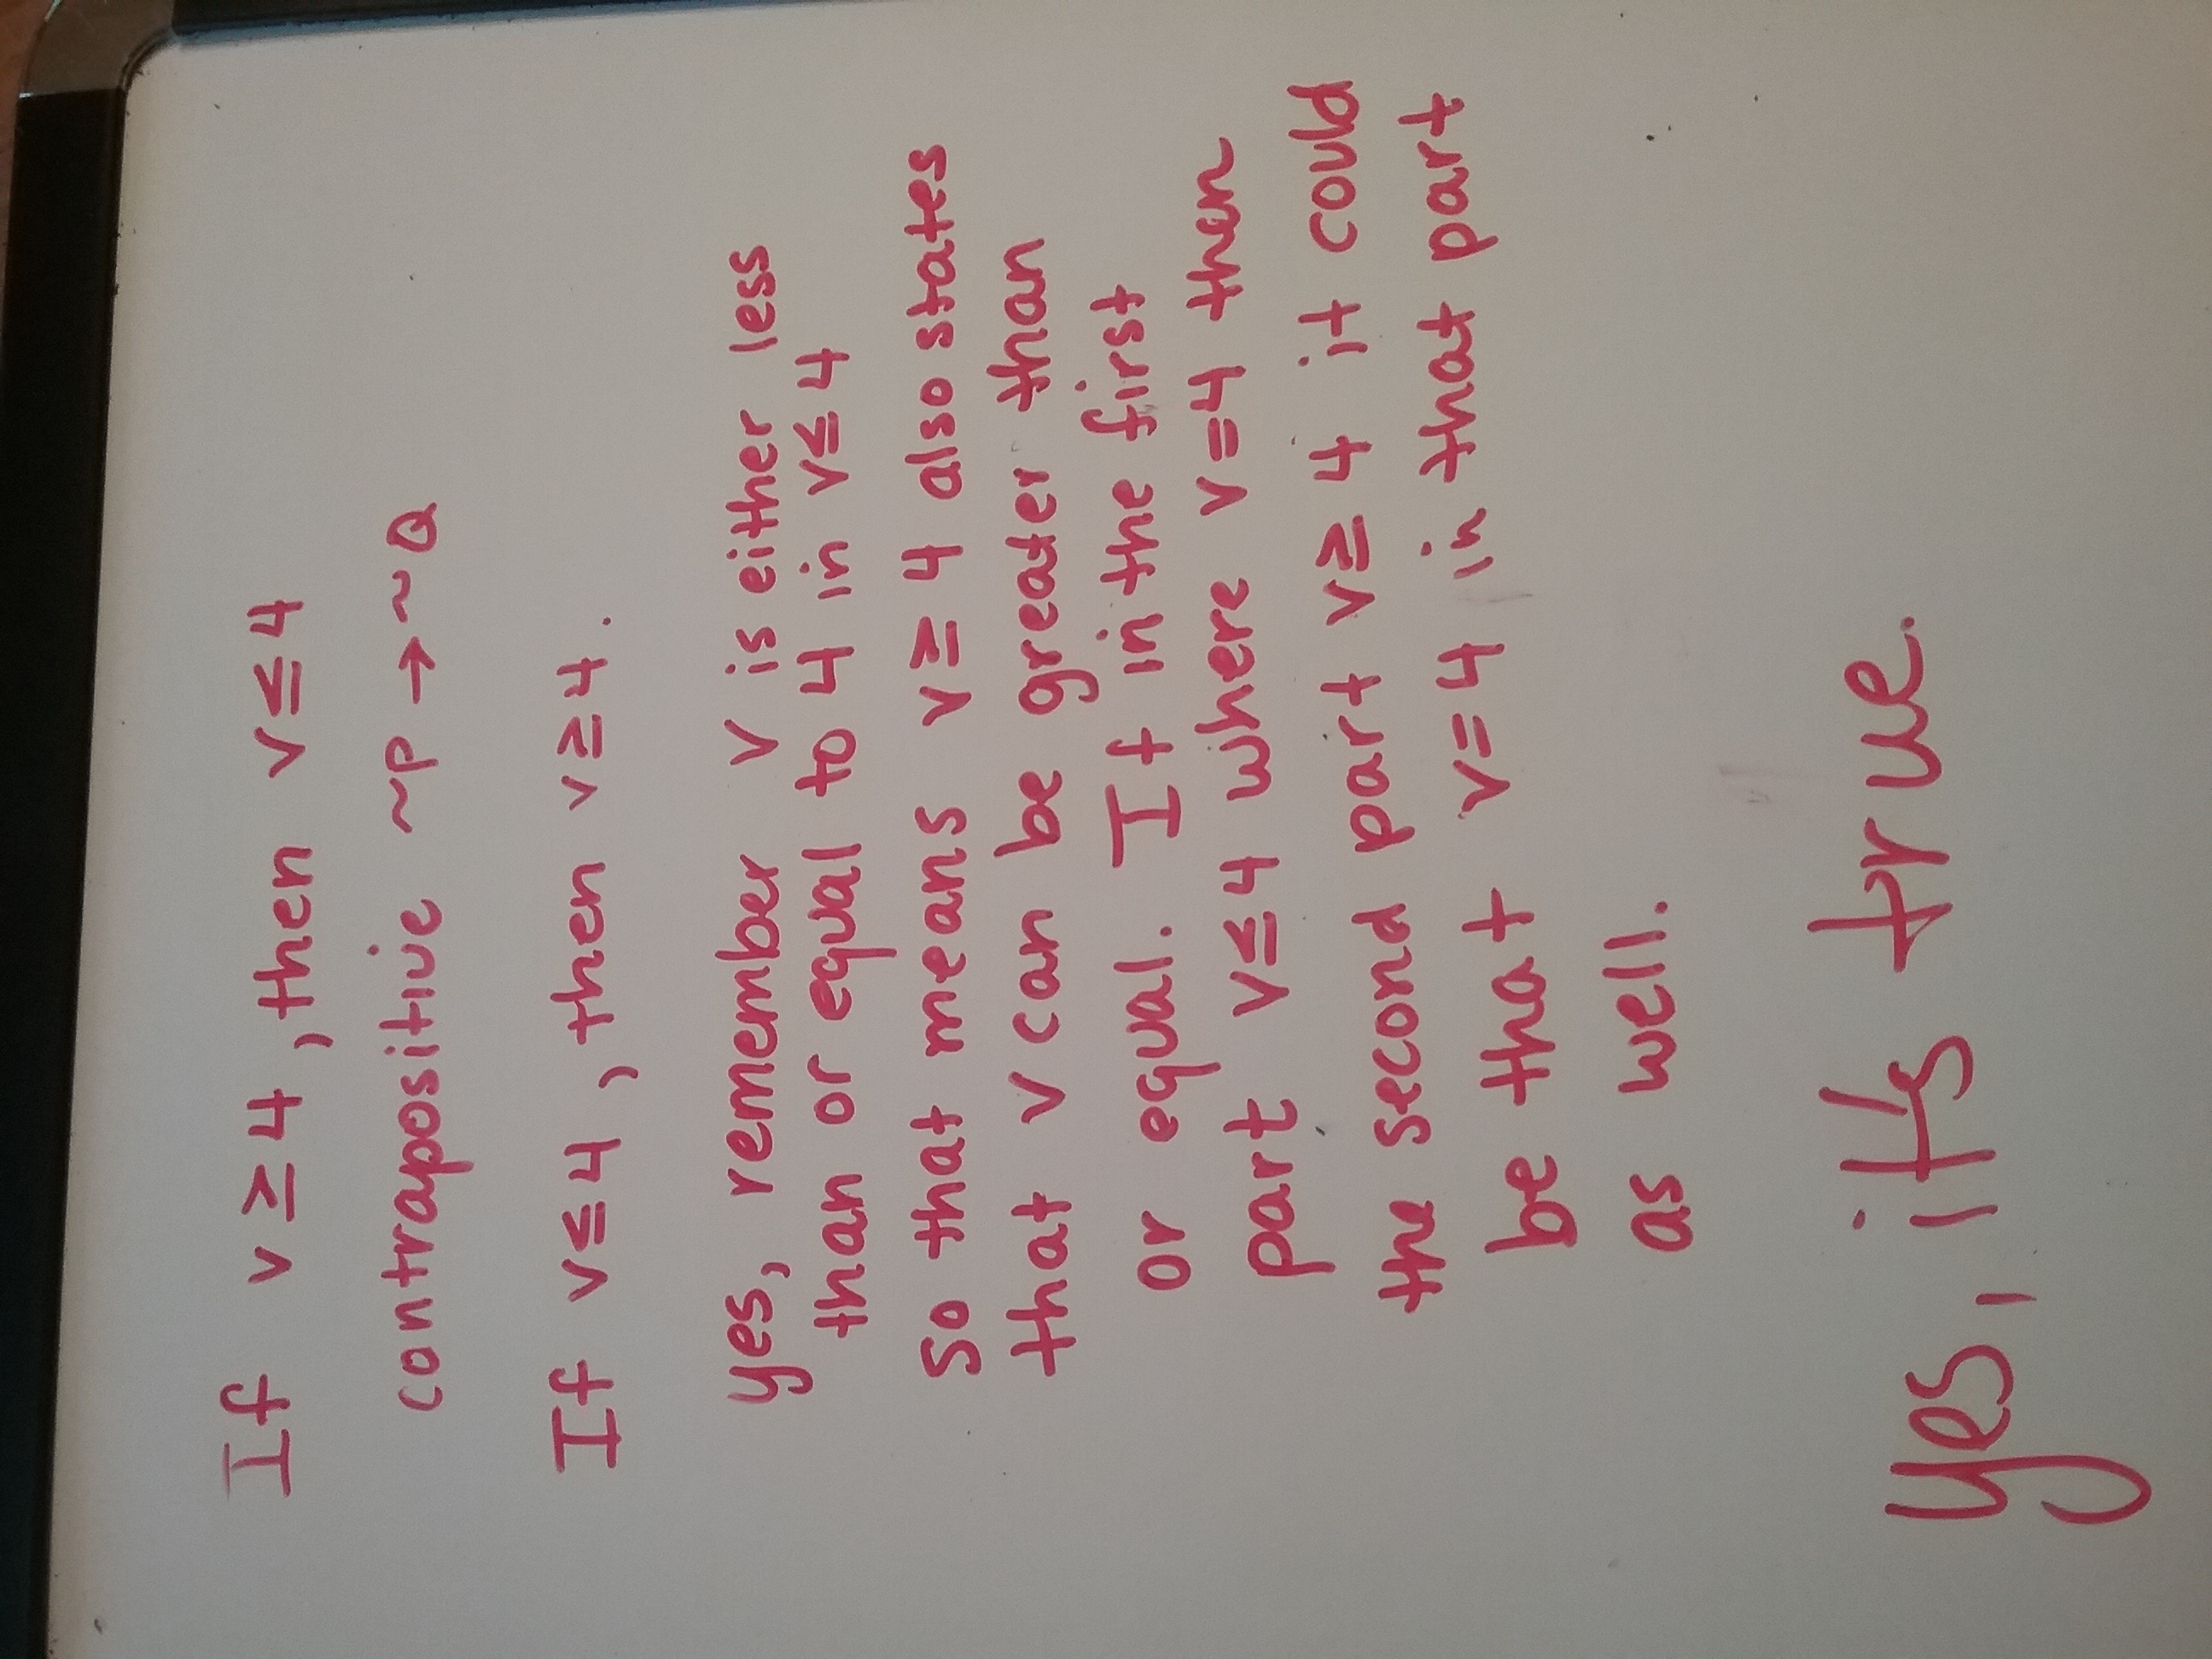 If v ≥ 4, then v ≤ 4
contrapositive ~p → ~Q
If v ≤ 4, then v ≥ 4.
yes, remember v is either less
than or equal to 4 in v ≤ 4
So that means v ≥ 4 also states
that v can be greater than
or equal. If in the first
part v ≤ 4 where v = 4 then
the second part v ≥ 4 it could
be that v = 4 in that part
as well.
yes, it's true.